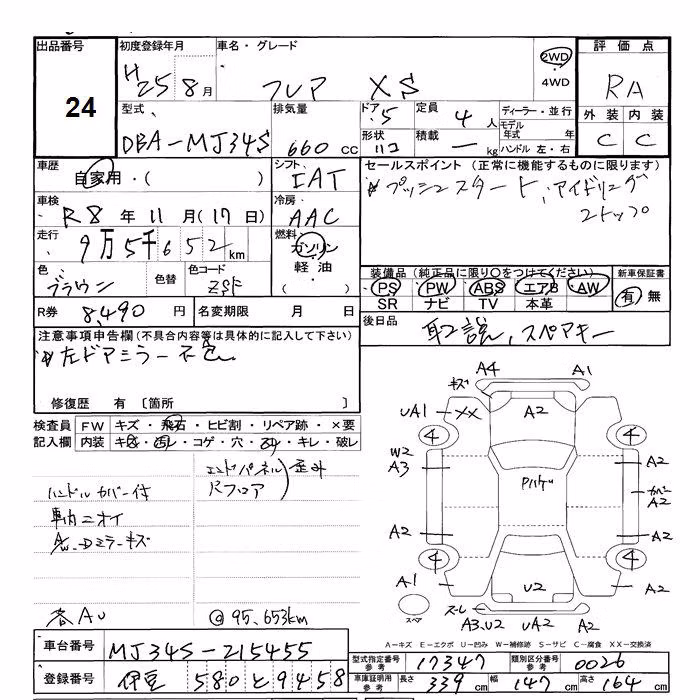 出品番号 初度登録年月 車名・グレード 評価点
24 H25 8月 フレア XS 2WD ・ 4WD RA
型式 排気量 ドア 5 定員 4人 ディーラー・並行 外装 内装
DBA-MJ34S 660cc 形状 積載 ー kg モデル年式 年 C C
ハンドル 左・右
車歴 自家用・( ) シフト IAT セールスポイント (正常に機能するものに限ります)
車検 R8年11月(17日) 冷房 AAC プッシュスタート、アイドリング
ストップ
走行 9万5千652km 燃料 ガソリン 軽油 ( ・ )
色 ブラウン 色替 色コード ZSF 装備品 (純正品に限り○をつけてください) 新車保証書
PS PW ABS エアB AW 有 無
SR ナビ TV 本革
R券 8,490円 名変期限 月 日 後日品 取説、スペアキー
注意事項申告欄(不具合内容等は具体的に記入して下さい)
左ドアミラー不
修復歴 有 〔箇所 〕
検査員 FW キズ・飛石・ヒビ割・リペア跡・×要
記入欄 内装 キズ・汚レ・コゲ・穴・ヌケ・キレ・破レ
エンドパネル 歪み
ハンドルカバー付 Rフロア
車内ニオイ
A/w・Dミラーキズ
各AU @95,653km
A4 A1
キズ A2
UA1 XX
4 4
W2 A2
A3
カバー
A2
A2 A2
4 4
A1 U2 A2
スペア A3.U2 UA2 A2
A-キズ E-エクボ U-凹み W-補修跡 S-サビ C-腐食 XX-交換済
車台番号 MJ34S-215455 型式指定番号 参考 17347 類別区分番号 参考 0026
登録番号 伊豆 580 と 9458 車庫証明用 参考 長さ 339cm 幅 147cm 高さ 164cm